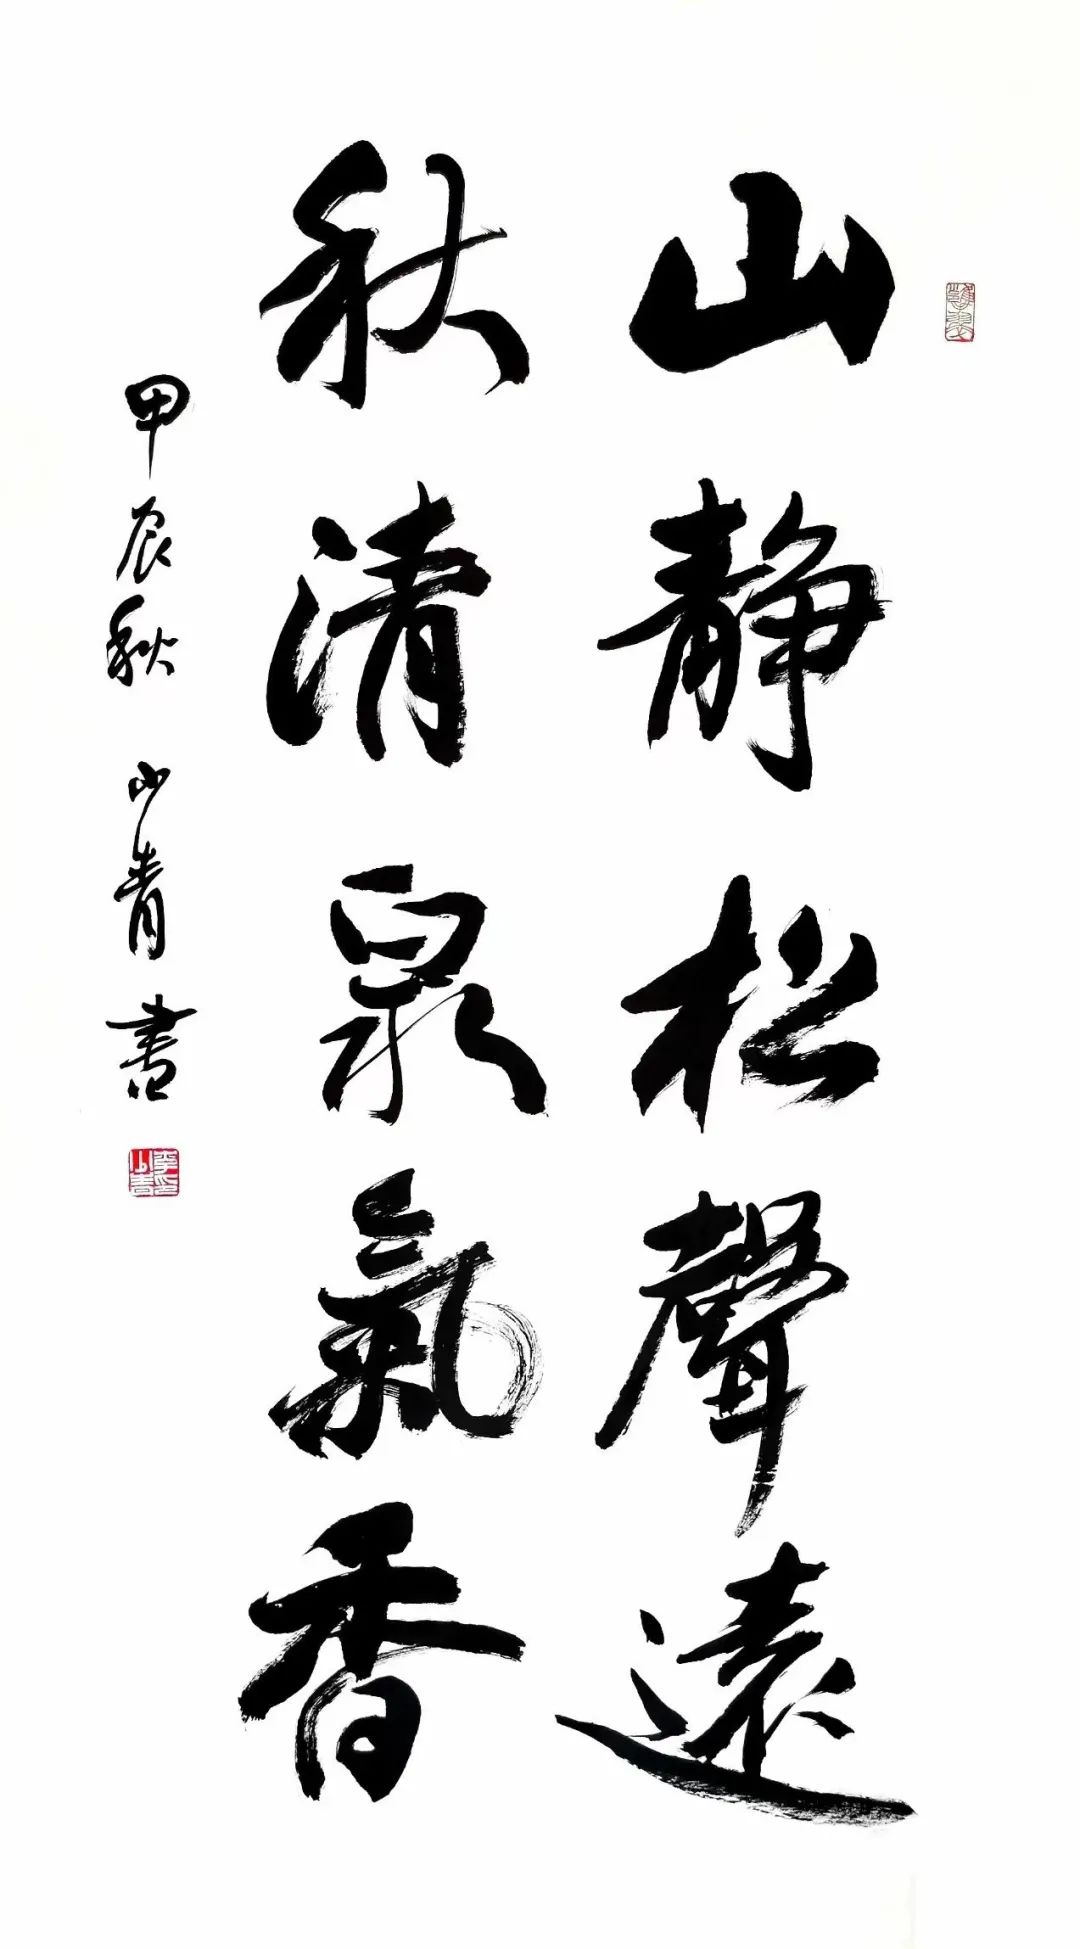 山静松聲遠
秋清泉氣香
甲辰秋 小青書